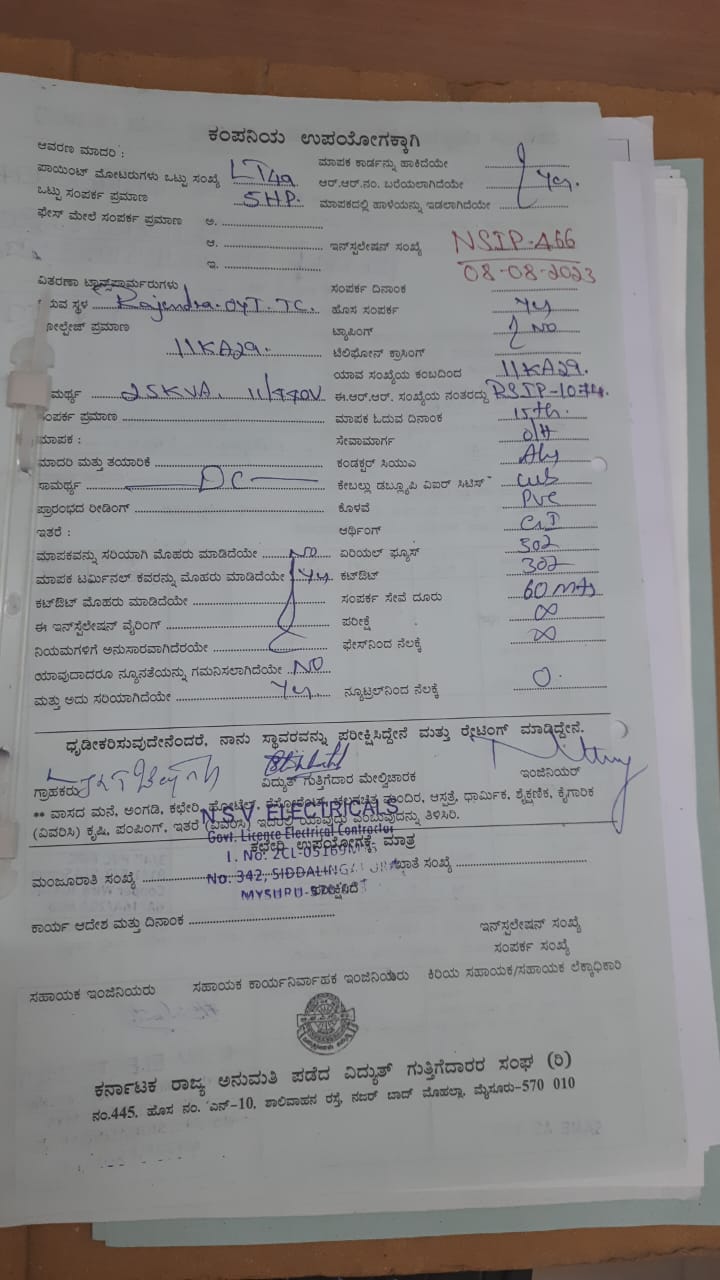 ಕಂಪನಿಯ ಉಪಯೋಗಕ್ಕಾಗಿ
ಆವರಣ ಮಾದರಿ : ಮಾಪಕ ಕಾರ್ಡನ್ನು ಹಾಕಿದೆಯೇ
ಪಾಯಿಂಟ್ ಮೋಟರುಗಳು ಒಟ್ಟು ಸಂಖ್ಯೆ LT4a ಆರ್.ಆರ್.ನಂ. ಬರೆಯಲಾಗಿದೆಯೇ Yes.
ಒಟ್ಟು ಸಂಪರ್ಕ ಪ್ರಮಾಣ 5HP. ಮಾಪಕದಲ್ಲಿ ಹಾಳೆಯನ್ನು ಇಡಲಾಗಿದೆಯೇ
ಫೇಸ್ ಮೇಲೆ ಸಂಪರ್ಕ ಪ್ರಮಾಣ ಅ.
ಆ. ಇನ್‌ಸ್ಟಲೇಷನ್ ಸಂಖ್ಯೆ NSIP-466
ಇ. 08-08-2023
ವಿತರಣಾ ಟ್ರಾನ್ಸ್‌ಫಾರ್ಮರುಗಳು ಸಂಪರ್ಕ ದಿನಾಂಕ
ಇರುವ ಸ್ಥಳ Rajendra-OYT.TC. ಹೊಸ ಸಂಪರ್ಕ Yes
ವೋಲ್ಟೇಜ್ ಪ್ರಮಾಣ ಟ್ಯಾಪಿಂಗ್ NO
11KA29. ಟೆಲಿಫೋನ್ ಕ್ರಾಸಿಂಗ್
ಯಾವ ಸಂಖ್ಯೆಯ ಕಂಬದಿಂದ 11KA29.
ಸಾಮರ್ಥ್ಯ 25KVA. 11/440V ಈ.ಆರ್.ಆರ್. ಸಂಖ್ಯೆಯ ನಂತರದ್ದು RSIP-1074.
ಸಂಪರ್ಕ ಪ್ರಮಾಣ ಮಾಪಕ ಓದುವ ದಿನಾಂಕ 15th.
ಮಾಪಕ : ಸೇವಾಮಾರ್ಗ O/H
ಮಾದರಿ ಮತ್ತು ತಯಾರಿಕೆ ಕಂಡಕ್ಟರ್ ಸಿಯುಎ Aly
ಸಾಮರ್ಥ್ಯ DC ಕೇಬಲ್ಲು ಡಬ್ಲ್ಯೂಪಿ ಎಐರ್ ಸಿಟಿಸ್
ಪ್ರಾರಂಭದ ರೀಡಿಂಗ್ ಕೊಳವೆ PVC
ಇತರೆ : ಆರ್ಥಿಂಗ್ GI
ಮಾಪಕವನ್ನು ಸರಿಯಾಗಿ ಮೊಹರು ಮಾಡಿದೆಯೇ NO ಏರಿಯಲ್ ಫ್ಯೂಸ್ 302
ಮಾಪಕ ಟರ್ಮಿನಲ್ ಕವರನ್ನು ಮೊಹರು ಮಾಡಿದೆಯೇ Yes. ಕಟ್‌ಔಟ್ 302
ಕಟ್‌ಔಟ್ ಮೊಹರು ಮಾಡಿದೆಯೇ ಸಂಪರ್ಕ ಸೇವೆ ದೂರು 60 mts
ಈ ಇನ್‌ಸ್ಟಲೇಷನ್ ವೈರಿಂಗ್ ಪರೀಕ್ಷೆ ∞
ನಿಯಮಗಳಿಗೆ ಅನುಸಾರವಾಗಿದೆಯೇ ಫೇಸ್‌ನಿಂದ ನೆಲಕ್ಕೆ ∞
ಯಾವುದಾದರೂ ನ್ಯೂನತೆಯನ್ನು ಗಮನಿಸಲಾಗಿದೆಯೇ NO
ಮತ್ತು ಅದು ಸರಿಯಾಗಿದೆಯೇ Yes. ನ್ಯೂಟ್ರಲ್‌ನಿಂದ ನೆಲಕ್ಕೆ 0.
ಧೃಡೀಕರಿಸುವುದೇನೆಂದರೆ, ನಾನು ಸ್ಥಾವರವನ್ನು ಪರೀಕ್ಷಿಸಿದ್ದೇನೆ ಮತ್ತು ರೇಟಿಂಗ್ ಮಾಡಿದ್ದೇನೆ.
ಗ್ರಾಹಕರು ವಿದ್ಯುತ್ ಗುತ್ತಿಗೆದಾರ ಮೇಲ್ವಿಚಾರಕ ಇಂಜಿನಿಯರ್
** ವಾಸದ ಮನೆ, ಅಂಗಡಿ, ಕಛೇರಿ, ಹೋಟೆಲ್, ರೆಸ್ಟೋರೆಂಟ್, ಚಲನಚಿತ್ರ ಮಂದಿರ, ಆಸ್ಪತ್ರೆ, ಧಾರ್ಮಿಕ, ಶೈಕ್ಷಣಿಕ, ಕೈಗಾರಿಕ
(ವಿವರಿಸಿ) ಕೃಷಿ, ಪಂಪಿಂಗ್, ಇತರೆ (ವಿವರಿಸಿ) ಇದರಲ್ಲಿ ಯಾವುದು ಎಂಬುವುದನ್ನು ತಿಳಿಸಿರಿ.
N.S.V. ELECTRICALS
Govt. Licence Electrical Contractor
ಕಛೇರಿ ಉಪಯೋಗಕ್ಕೆ ಮಾತ್ರ
ಮಂಜೂರಾತಿ ಸಂಖ್ಯೆ ಖಾತೆ ಸಂಖ್ಯೆ
No. 342, SIDDALINGAPURA
MYSURU
ಕಾರ್ಯ ಆದೇಶ ಮತ್ತು ದಿನಾಂಕ
ಇನ್‌ಸ್ಟಲೇಶನ್ ಸಂಖ್ಯೆ
ಸಂಪರ್ಕ ಸಂಖ್ಯೆ
ಸಹಾಯಕ ಇಂಜಿನಿಯರು ಸಹಾಯಕ ಕಾರ್ಯನಿರ್ವಾಹಕ ಇಂಜಿನಿಯರು ಕಿರಿಯ ಸಹಾಯಕ/ಸಹಾಯಕ ಲೆಕ್ಕಾಧಿಕಾರಿ
ಕರ್ನಾಟಕ ರಾಜ್ಯ ಅನುಮತಿ ಪಡೆದ ವಿದ್ಯುತ್ ಗುತ್ತಿಗೆದಾರರ ಸಂಘ (ರಿ)
ನಂ.445, ಹೊಸ ನಂ. ಎನ್-10, ಶಾಲಿವಾಹನ ರಸ್ತೆ, ನಜರ್ ಬಾದ್ ಮೊಹಲ್ಲಾ, ಮೈಸೂರು-570 010